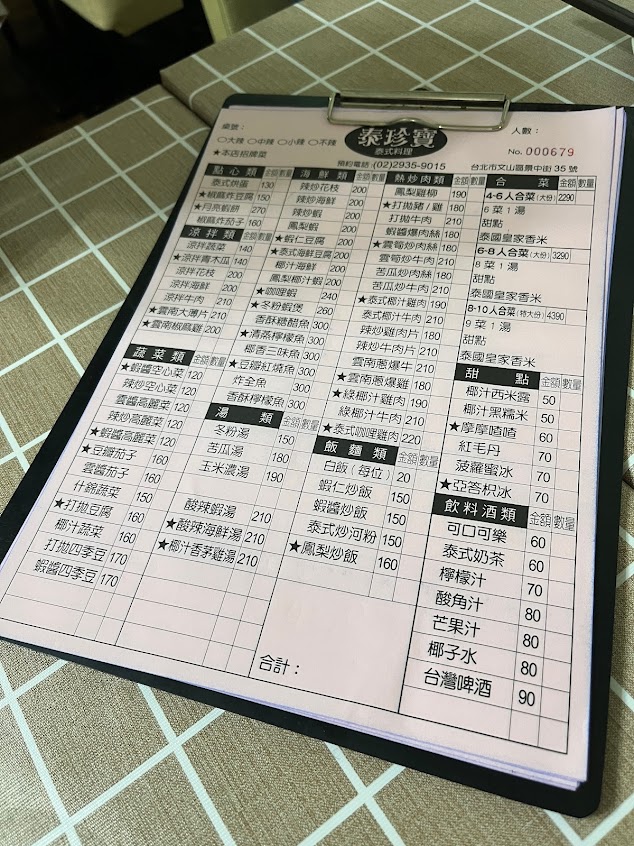 桌號：
人數：
泰珍寶
泰式料理
○大辣 ○中辣 ○小辣 ○不辣
No. 000679
★本店招牌菜
預約電話：(02)2935-9015
台北市文山區景中街35號
點心類 金額 數量
泰式烘蛋 130
★椒麻炸豆腐 150
★月亮蝦餅 270
椒麻炸茄子 160
涼拌類 金額 數量
涼拌蔬菜 140
★涼拌青木瓜 140
涼拌花枝 200
涼拌海鮮 200
涼拌牛肉 210
★雲南大薄片 210
★雲南椒麻雞 200
蔬菜類 金額 數量
★蝦醬空心菜 120
辣炒空心菜 120
雲醬高麗菜 120
辣炒高麗菜 120
★蝦醬高麗菜 120
★豆瓣茄子 160
雲醬茄子 160
什錦蔬菜 150
★打拋豆腐 160
椰汁蔬菜 160
打拋四季豆 170
蝦醬四季豆 170
海鮮類 金額 數量
辣炒花枝 200
辣炒海鮮 200
辣炒蝦 200
鳳梨蝦 200
★蝦仁豆腐 200
★泰式海鮮豆腐 200
椰汁海鮮 200
鳳梨椰汁蝦 200
★咖哩蝦 240
★冬粉蝦煲 200
香酥糖醋魚 300
★清蒸檸檬魚 300
椰香三味魚 300
★豆瓣紅燒魚 300
炸全魚 300
香酥檸檬魚 300
湯類 金額 數量
冬粉湯 150
苦瓜湯 180
玉米濃湯 190
酸辣蝦湯 210
★酸辣海鮮湯 210
★椰汁香茅雞湯 210
熱炒肉類 金額 數量
鳳梨雞柳 190
★打拋豬/雞 180
打拋牛肉 210
蝦醬爆肉絲 180
★雲筍炒肉絲 180
雲筍炒牛肉 210
苦瓜炒肉絲 180
苦瓜炒牛肉 210
★泰式椰汁雞肉 190
泰式椰汁牛肉 210
辣炒雞肉片 180
辣炒牛肉片 210
雲南蔥爆牛 210
★雲南蔥爆雞 180
★綠椰汁雞肉 190
綠椰汁牛肉 210
★泰式咖哩雞肉 220
飯麵類 金額 數量
白飯(每位) 20
蝦仁炒飯 150
蝦醬炒飯 150
泰式炒河粉 150
★鳳梨炒飯 160
合計：
合菜 金額 數量
4-6人合菜(大份) 2290
6菜1湯
甜點
泰國皇家香米
6-8人合菜(大份) 3290
8菜1湯
甜點
泰國皇家香米
8-10人合菜(特大份) 4390
9菜1湯
甜點
泰國皇家香米
甜點 金額 數量
椰汁西米露 50
椰汁黑糯米 50
★摩摩喳喳 60
紅毛丹 70
菠蘿蜜冰 70
★亞答枳冰 70
飲料酒類 金額 數量
可口可樂 60
泰式奶茶 60
檸檬汁 70
酸角汁 80
芒果汁 80
椰子水 80
台灣啤酒 90